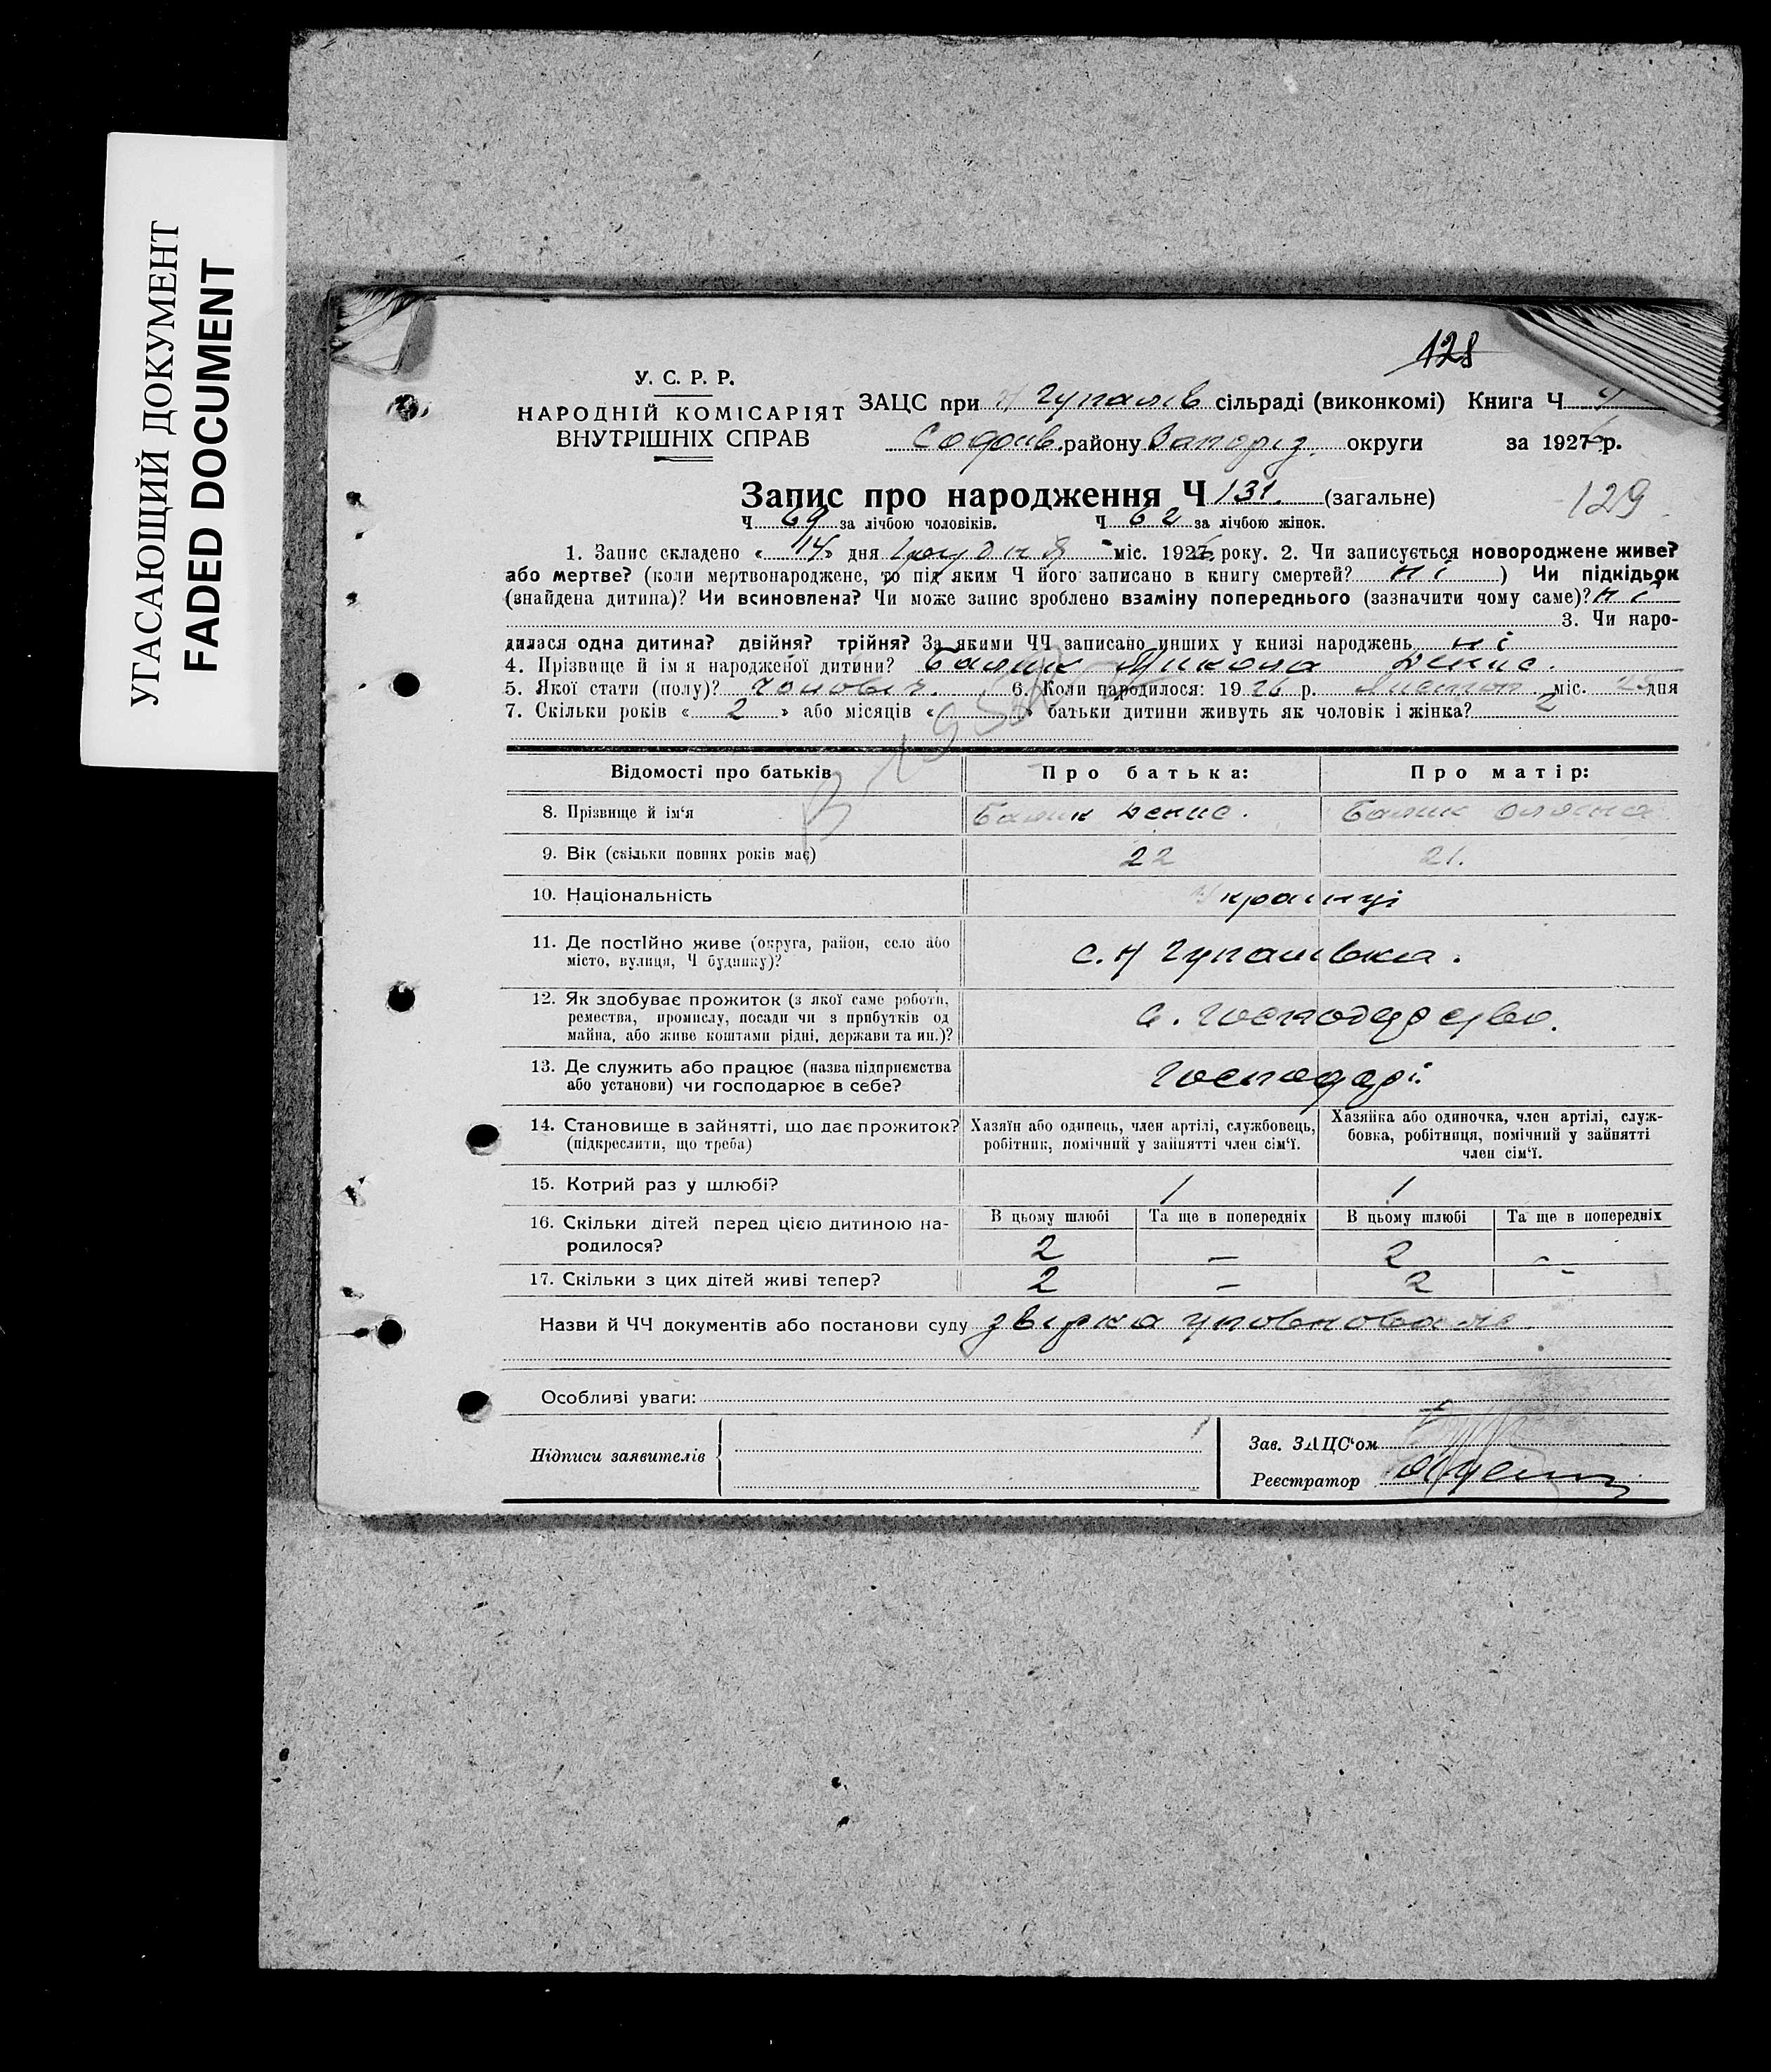 УГАСАЮЩИЙ ДОКУМЕНТ
FADED DOCUMENT
128
У. С. Р. Р.
НАРОДНІЙ КОМІСАРІЯТ
ВНУТРІШНІХ СПРАВ
ЗАЦС при Н Гупалів сільраді (виконкомі) Книга Ч
Софіїв. району Запоріз. округи за 1926 р.
Запис про народження Ч 131. (загальне)
129
Ч 69 за лічбою чоловіків. Ч 62 за лічбою жінок.
1. Запис складено « 14 » дня Грудня міс. 1926 року. 2. Чи записується новороджене живе?
або мертве? (коли мертвонароджене, то під яким Ч його записано в книгу смертей? ні ) Чи підкідьок
(знайдена дитина)? Чи всиновлена? Чи може запис зроблено взаміну попереднього (зазначити чому саме)? ні
3. Чи наро-
дилася одна дитина? двійня? трійня? За якими ЧЧ записано инших у книзі народжень ні
4. Прізвище й ім я народженої дитини? Балик Микола Денис.
5. Якої стати (полу)? Чолович. 6. Коли народилося: 1926 р. Листоп міс. дня
7. Скільки років « 2 » або місяців « » батьки дитини живуть як чоловік і жінка? 2
Відомості про батьків
Про батька:
Про матір:
8. Прізвище й ім'я Балик Денис. Балик Оляна
9. Вік (скільки повних років має) 22 21.
10. Національність Українці
11. Де постійно живе (округа, район, село або
місто, вулиця, Ч будинку)?
с. Н Гупалівка.
12. Як здобуває прожиток (з якої саме роботи,
ремества, промислу, посади чи з прибутків од
майна, або живе коштами рідні, держави та ин.)?
с. господарство.
13. Де служить або працює (назва підприємства
або установи) чи господарює в себе?
Господарі.
14. Становище в зайнятті, що дає прожиток?
(підкреслити, що треба)
Хазяїн або одинець, член артілі, службовець,
робітник, помічний у зайнятті член сім'ї.
Хазяйка або одиночка, член артілі, служ-
бовка, робітниця, помічний у зайнятті
член сім'ї.
15. Котрий раз у шлюбі? 1 1
16. Скільки дітей перед цією дитиною на-
родилося?
В цьому шлюбі Та ще в попередніх В цьому шлюбі Та ще в попередніх
2 – 2 –
17. Скільки з цих дітей живі тепер? 2 – 2 –
Назви й ЧЧ документів або постанови суду звірка
Особливі уваги:
Підписи заявителів
Зав. ЗАЦС'ом
Реєстратор